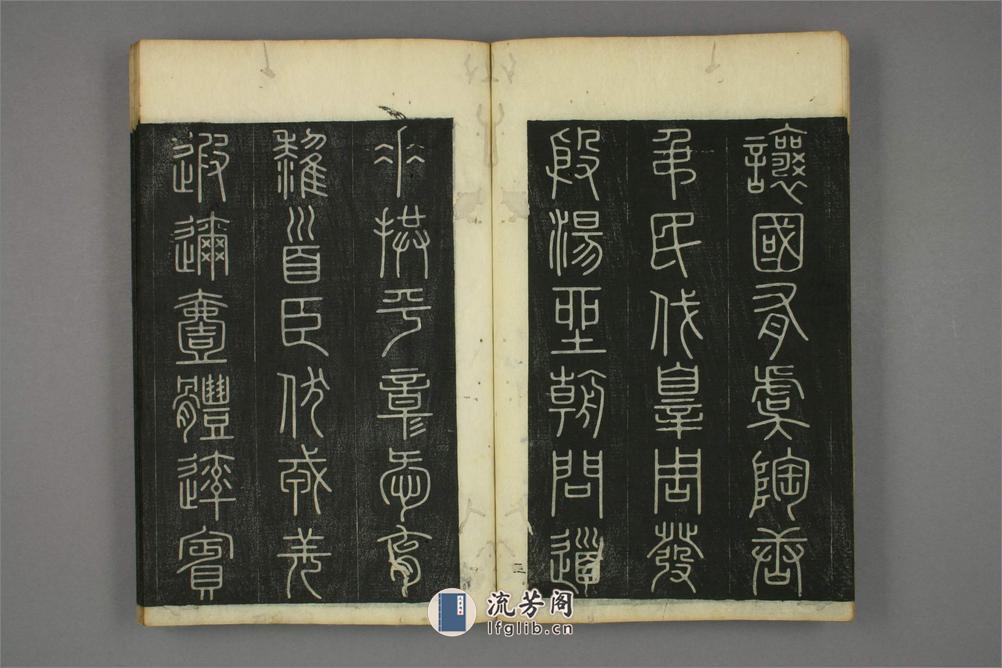 讓國有虞陶唐
弔民伐辠周發
殷湯坐朝問道
垂拱平彰愛育
黎首臣伏戎羌
遐邇壹體率賓
流芳阁
lfglib.cn